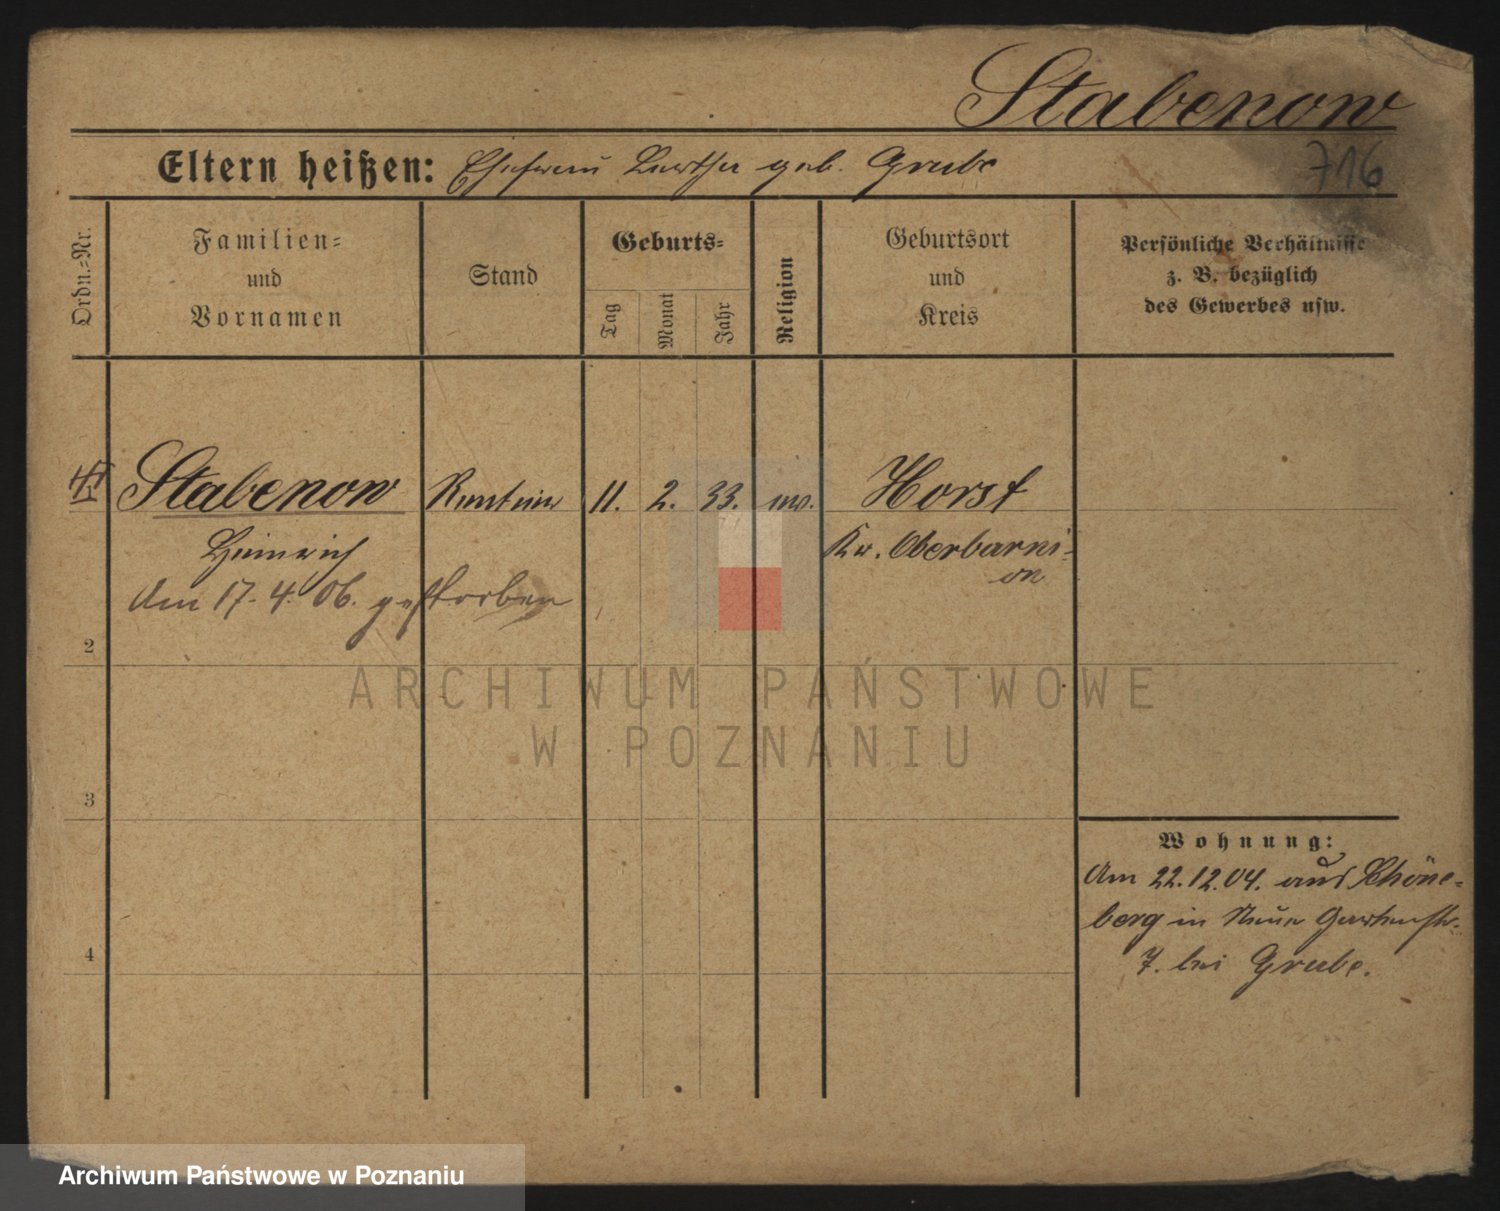 Stabenow
Eltern heißen: Ehefrau Bertha geb. Grube
716
Ordn.-Nr.
Familien-
und
Vornamen
Stand
Geburts-
Tag
Monat
Jahr
Religion
Geburtsort
und
Kreis
Persönliche Verhältnisse
z. B. bezüglich
des Gewerbes usw.
Stabenow Rentner 11. 2. 33. ev. Horst
Heinrich Kr. Oberbarni-
on
Am 17. 4. 06. gestorben
2
ARCHIWUM PAŃSTWOWE
W POZNANIU
3
Wohnung:
Am 22.12.04. aus Schöne-
berg in Neue Gartenstr.
4
7. bei Grube.
Archiwum Państwowe w Poznaniu